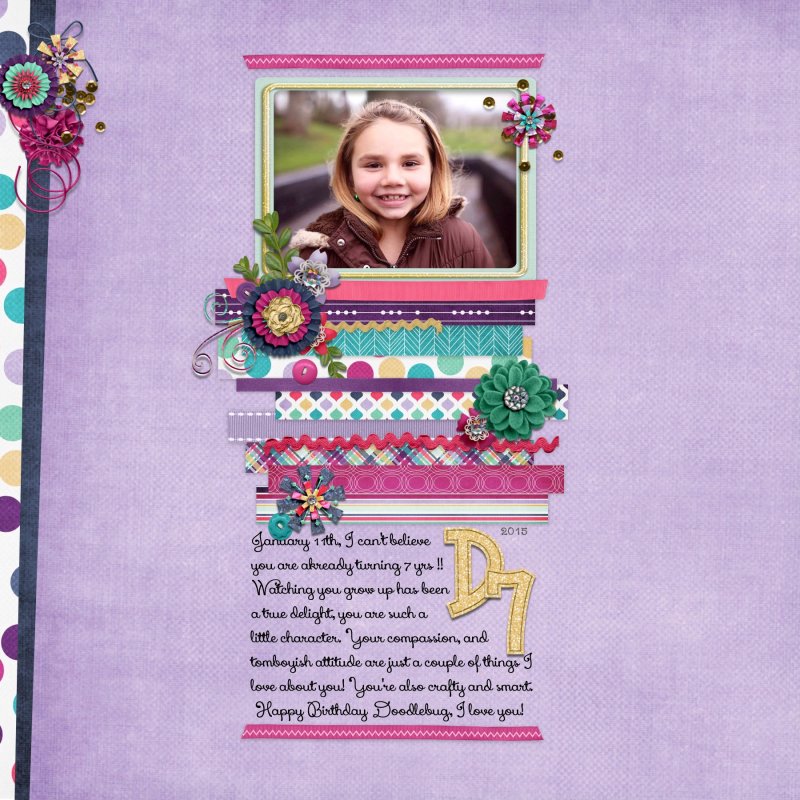 2015
January 11th, I can't believe
you are akready turning 7 yrs !!
Watching you grow up has been
a true delight, you are such a
little character. Your compassion, and
tomboyish attitude are just a couple of things I
love about you! You're also crafty and smart.
Happy Birthday Doodlebug, I love you!
D7